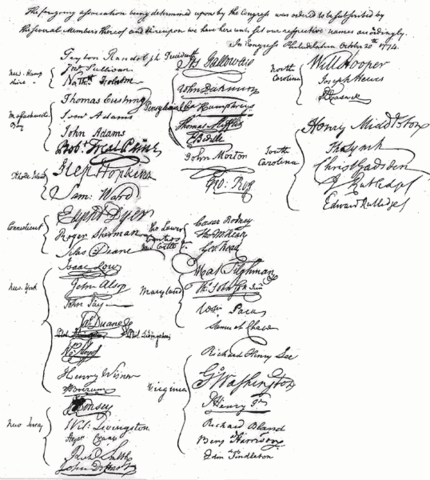 The foregoing association being determined upon by the Congress was ordered to be subscribed by
the several Members thereof and thereupon we have hereunto set our respective names accordingly.
In Congress Philadelphia October 20th 1774.
Peyton Randolph President
New Hampshire
Jno Sullivan
Nathl Folsom
Massachusetts Bay
Thomas Cushing
Saml Adams
John Adams
Robt Treat Paine
Rhode Island
Step Hopkins
Sam: Ward
Connecticut
Elipht Dyer
Roger Sherman
Silas Deane
New York
Isaac Low
John Alsop
John Jay
Jas Duane
Phil Livingston
Henry Wisner
S: Boerum
New Jersey
J Kinsey
Wil: Livingston
Stepn Crane
Richd Smith
John De Hart
Pennsylvania
Jos Galloway
John Dickinson
Cha Humphreys
Thomas Mifflin
E Biddle
John Morton
Geo: Ross
The Lower Counties New Castle
Caesar Rodney
Tho M:Kean
Geo Read
Maryland
Mat Tilghman
Th Johnson Junr
Wm Paca
Samuel Chase
Virginia
Richard Henry Lee
Go Washington
P Henry Jr
Richard Bland
Benj Harrison
Edm Pendleton
North Carolina
Will Hooper
Joseph Hewes
R Caswell
South Carolina
Henry Middleton
Tho Lynch
Christ Gadsden
J Rutledge
Edward Rutledge